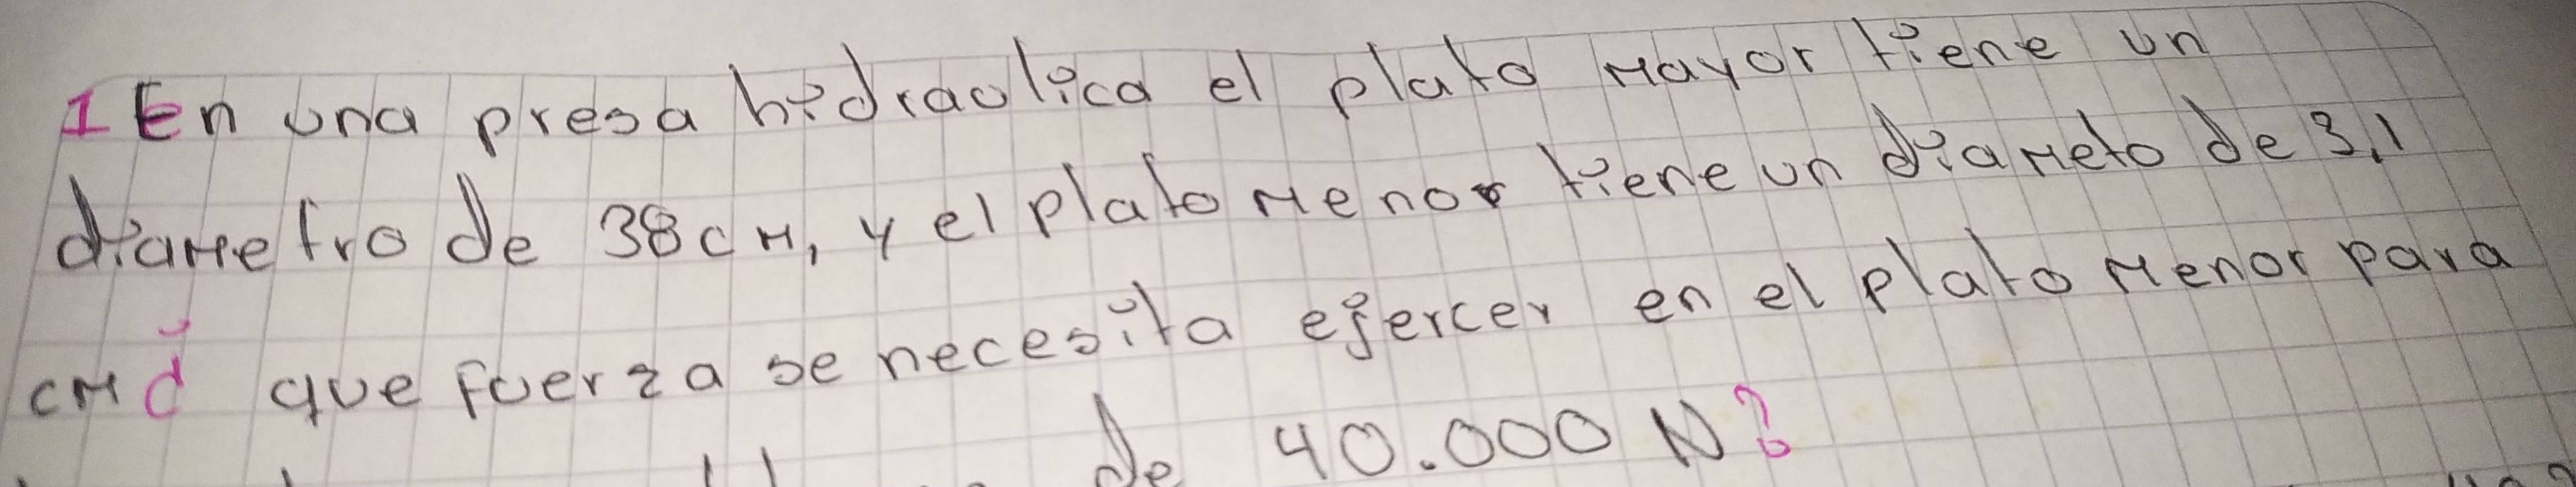 1 En una presa hidraulica el plato mayor tiene un
diametro de 38cm, y el plato menor tiene un diameto de 3,1
cm ¿ que fuerza se necesita ejercer en el plato menor para
de 40.000 N?